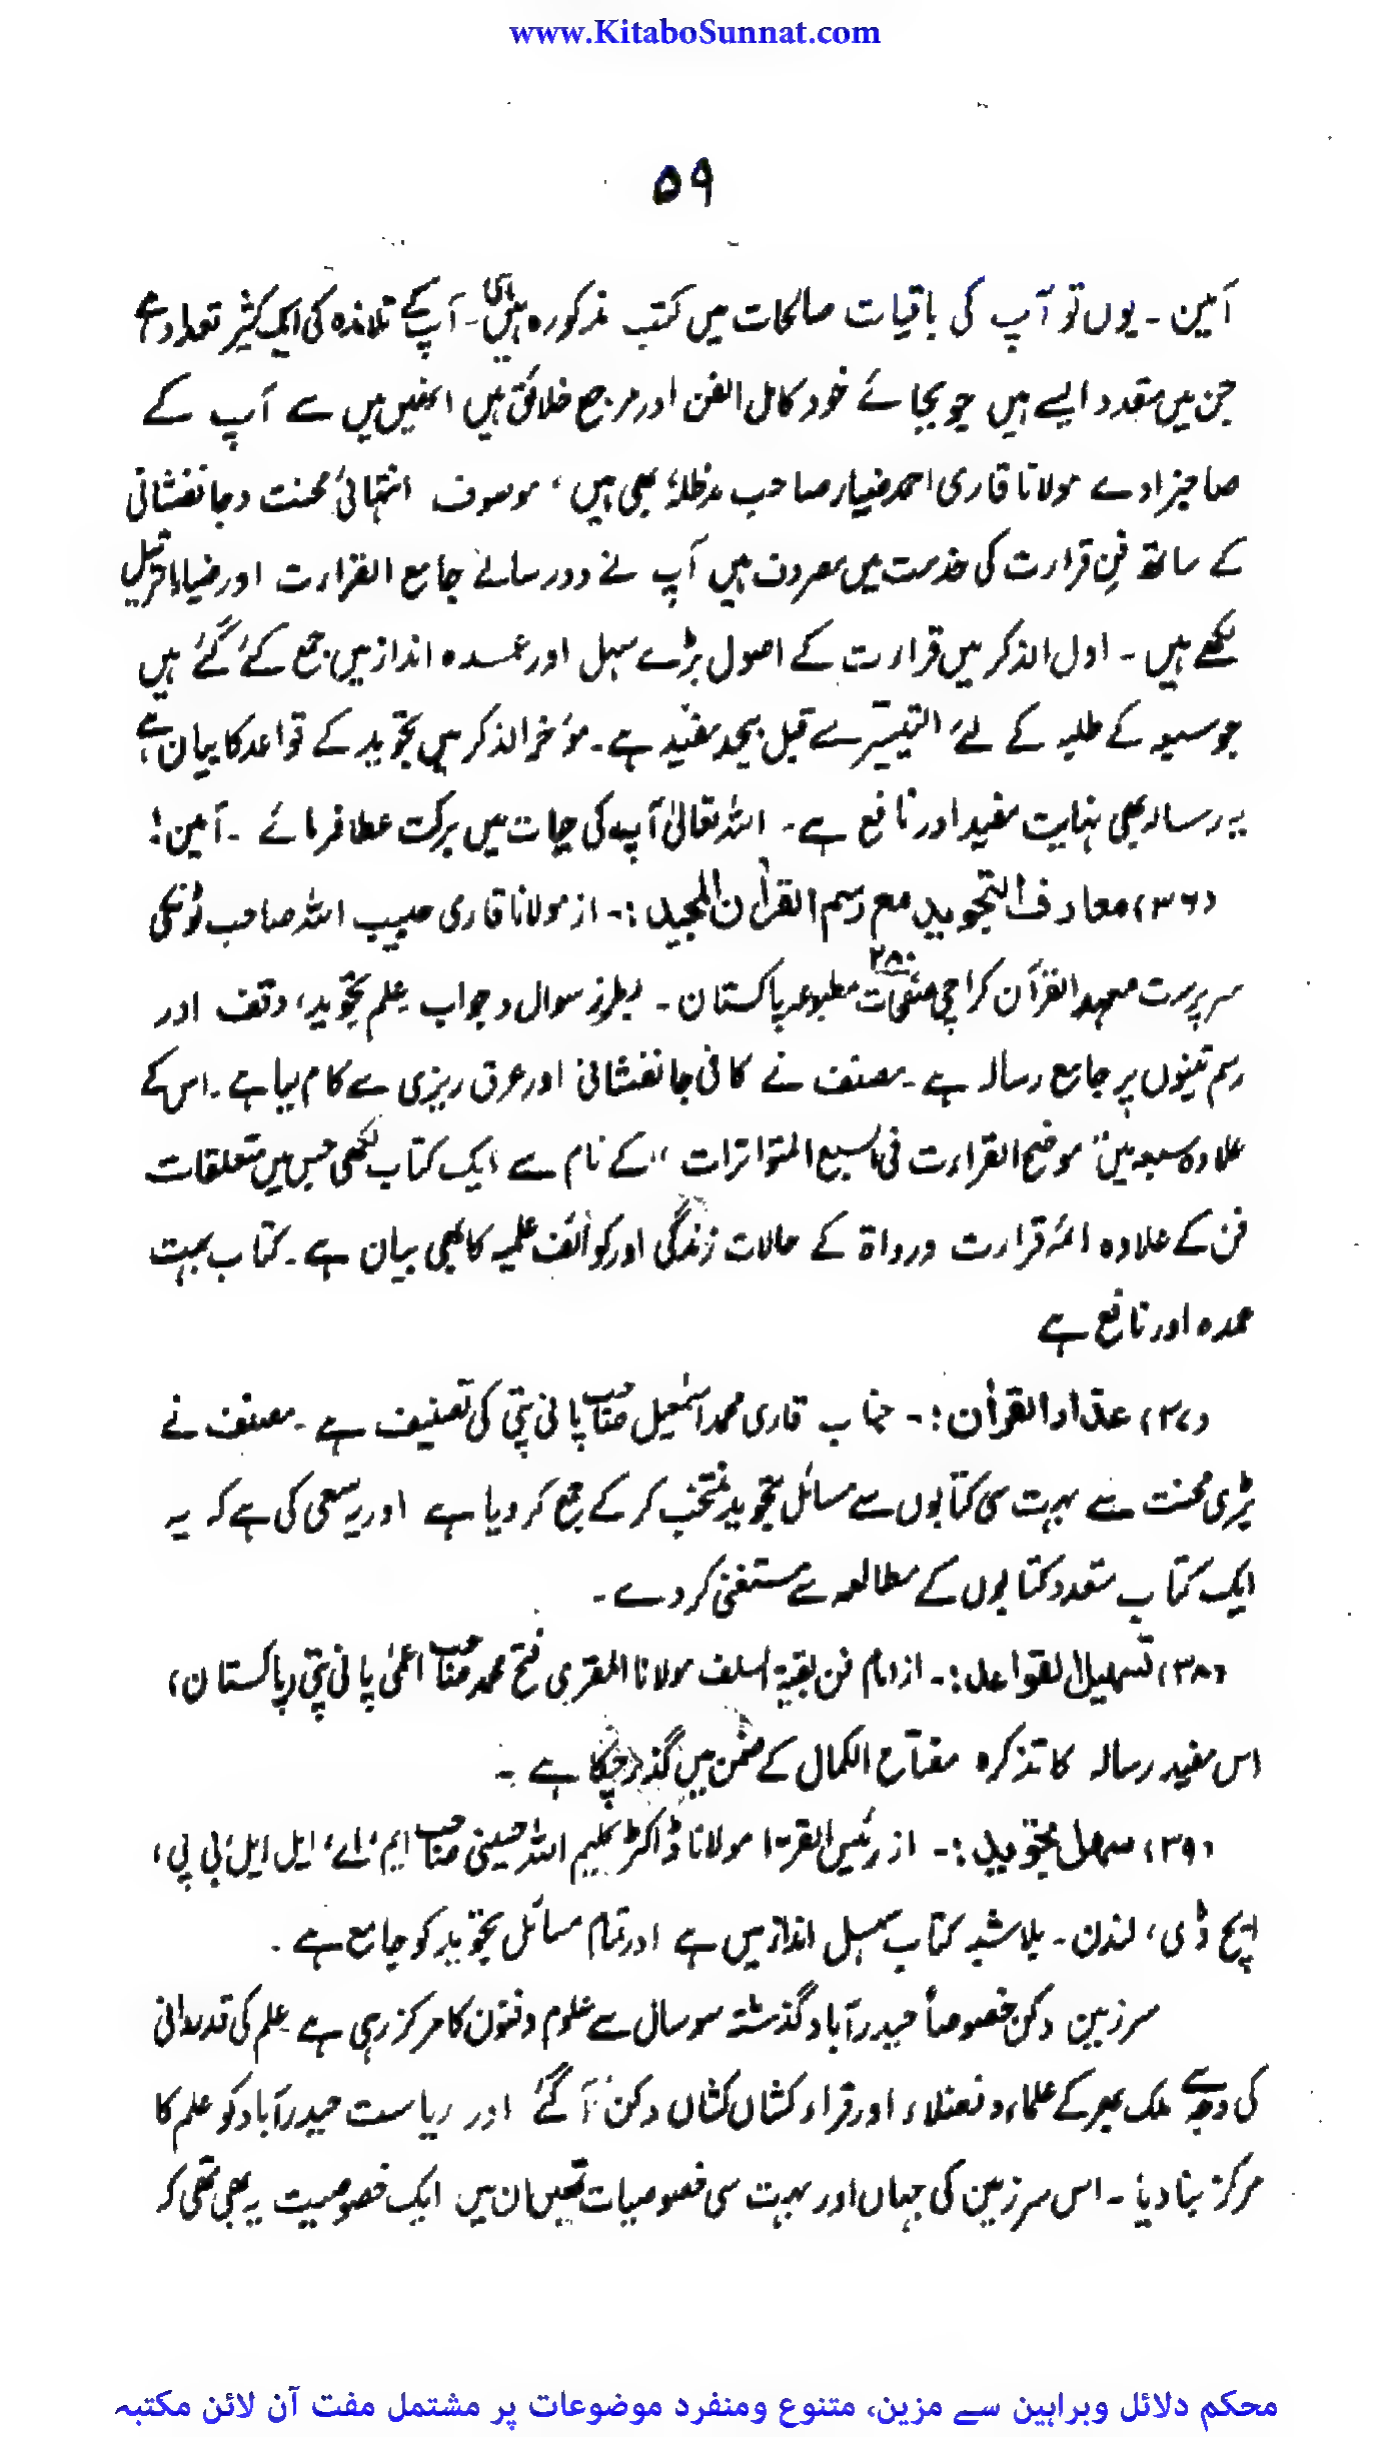 www.KitaboSunnat.com
۵۹
آمین ۔ یوں تو آپ کی باقیات صالحات میں کتب مذکورہ ہیں ہی ۔ آپ کے تلامذہ کی ایک کثیر تعداد ہے
جن میں متعدد ایسے ہیں جو بجائے خود کامل الفن اور مرجع خلائق ہیں انھیں میں سے آپ کے
صاحبزادے مولانا قاری احمد ضیاء صاحب مدظلہٗ بھی ہیں ، موصوف انتہائی محنت و جانفشانی
کے ساتھ فنِ قراءت کی خدمت میں مصروف ہیں آپ نے دو رسالے جامع القراءت اور ضیاء الترتیل
لکھے ہیں ۔ اول الذکر میں قراءت کے اصول بڑے سہل اور عمدہ انداز میں جمع کئے گئے ہیں
جو سبعہ کے طلبہ کے لئے التیسیر سے قبل بیحد مفید ہے ۔ مؤخر الذکر میں تجوید کے قواعد کا بیان ہے
یہ رسالہ بھی نہایت مفید اور نافع ہے ۔ اللہ تعالیٰ آپ کی حیات میں برکت عطا فرمائے ۔ آمین !
(۳۶) معارف التجوید مع رسم القرآن المجید :۔ از مولانا قاری حبیب اللہ صاحب ٹونکی
سرپرست معہد القرآن کراچی صفحات ۲۸۰ مطبوعہ پاکستان ۔ بطرز سوال و جواب علم تجوید، وقف اور
رسم تینوں پر جامع رسالہ ہے ۔ مصنف نے کافی جانفشانی اور عرق ریزی سے کام لیا ہے ۔ اس کے
علاوہ سبعہ میں “موضح القراءت فی السبع المتواترات” کے نام سے ایک کتاب لکھی جس میں متعلقات
فن کے علاوہ ائمۂ قراءت و رواۃ کے حالات زندگی اور کوائف علمیہ کا بھی بیان ہے ۔ کتاب بہت
عمدہ اور نافع ہے
(۳۷) عذاد القرآن :۔ جناب قاری محمد اسمٰعیل صاحب پانی پتی کی تصنیف ہے ۔ مصنف نے
بڑی محنت سے بہت سی کتابوں سے مسائل تجوید منتخب کر کے جمع کر دیا ہے اور یہ سعی کی ہے کہ یہ
ایک کتاب متعدد کتابوں کے مطالعہ سے مستغنی کر دے ۔
(۳۸) تسہیل القواعد :۔ از امام فن بقیۃ السلف مولانا المقری فتح محمد صاحب اعمیٰ پانی پتی (پاکستان)
اس مفید رسالہ کا تذکرہ مفتاح الکمال کے ضمن میں گذر چکا ہے ۔
(۳۹) سہل تجوید :۔ از رئیس القراء مولانا ڈاکٹر کلیم اللہ حسینی صاحب ایم ، اے ، ایل ایل ، بی پی ،
ایچ ڈی ، لندن ۔ بلاشبہ کتاب سہل انداز میں ہے اور تمام مسائل تجوید کو جامع ہے ۔
سرزمین دکن خصوصاً حیدرآباد گذشتہ سو سال سے علوم و فنون کا مرکز رہی ہے علم کی قدردانی
کی وجہ سے ملک بھر کے علماء و فضلاء اور قراء کشاں کشاں دکن آ گئے اور ریاست حیدرآباد کو علم کا
مرکز بنا دیا ۔ اس سرزمین کی جہاں اور بہت سی خصوصیات تھیں ان میں ایک خصوصیت یہ بھی تھی کہ
محکم دلائل وبراہین سے مزین، متنوع ومنفرد موضوعات پر مشتمل مفت آن لائن مکتبہ